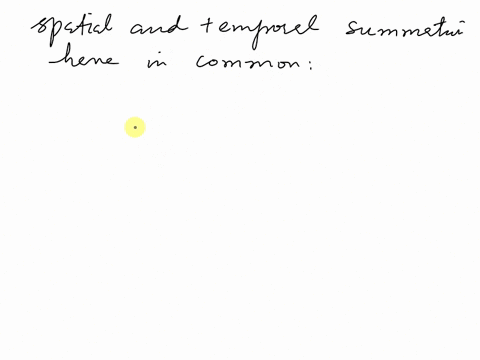 spatial and temporal summetri
have in common: